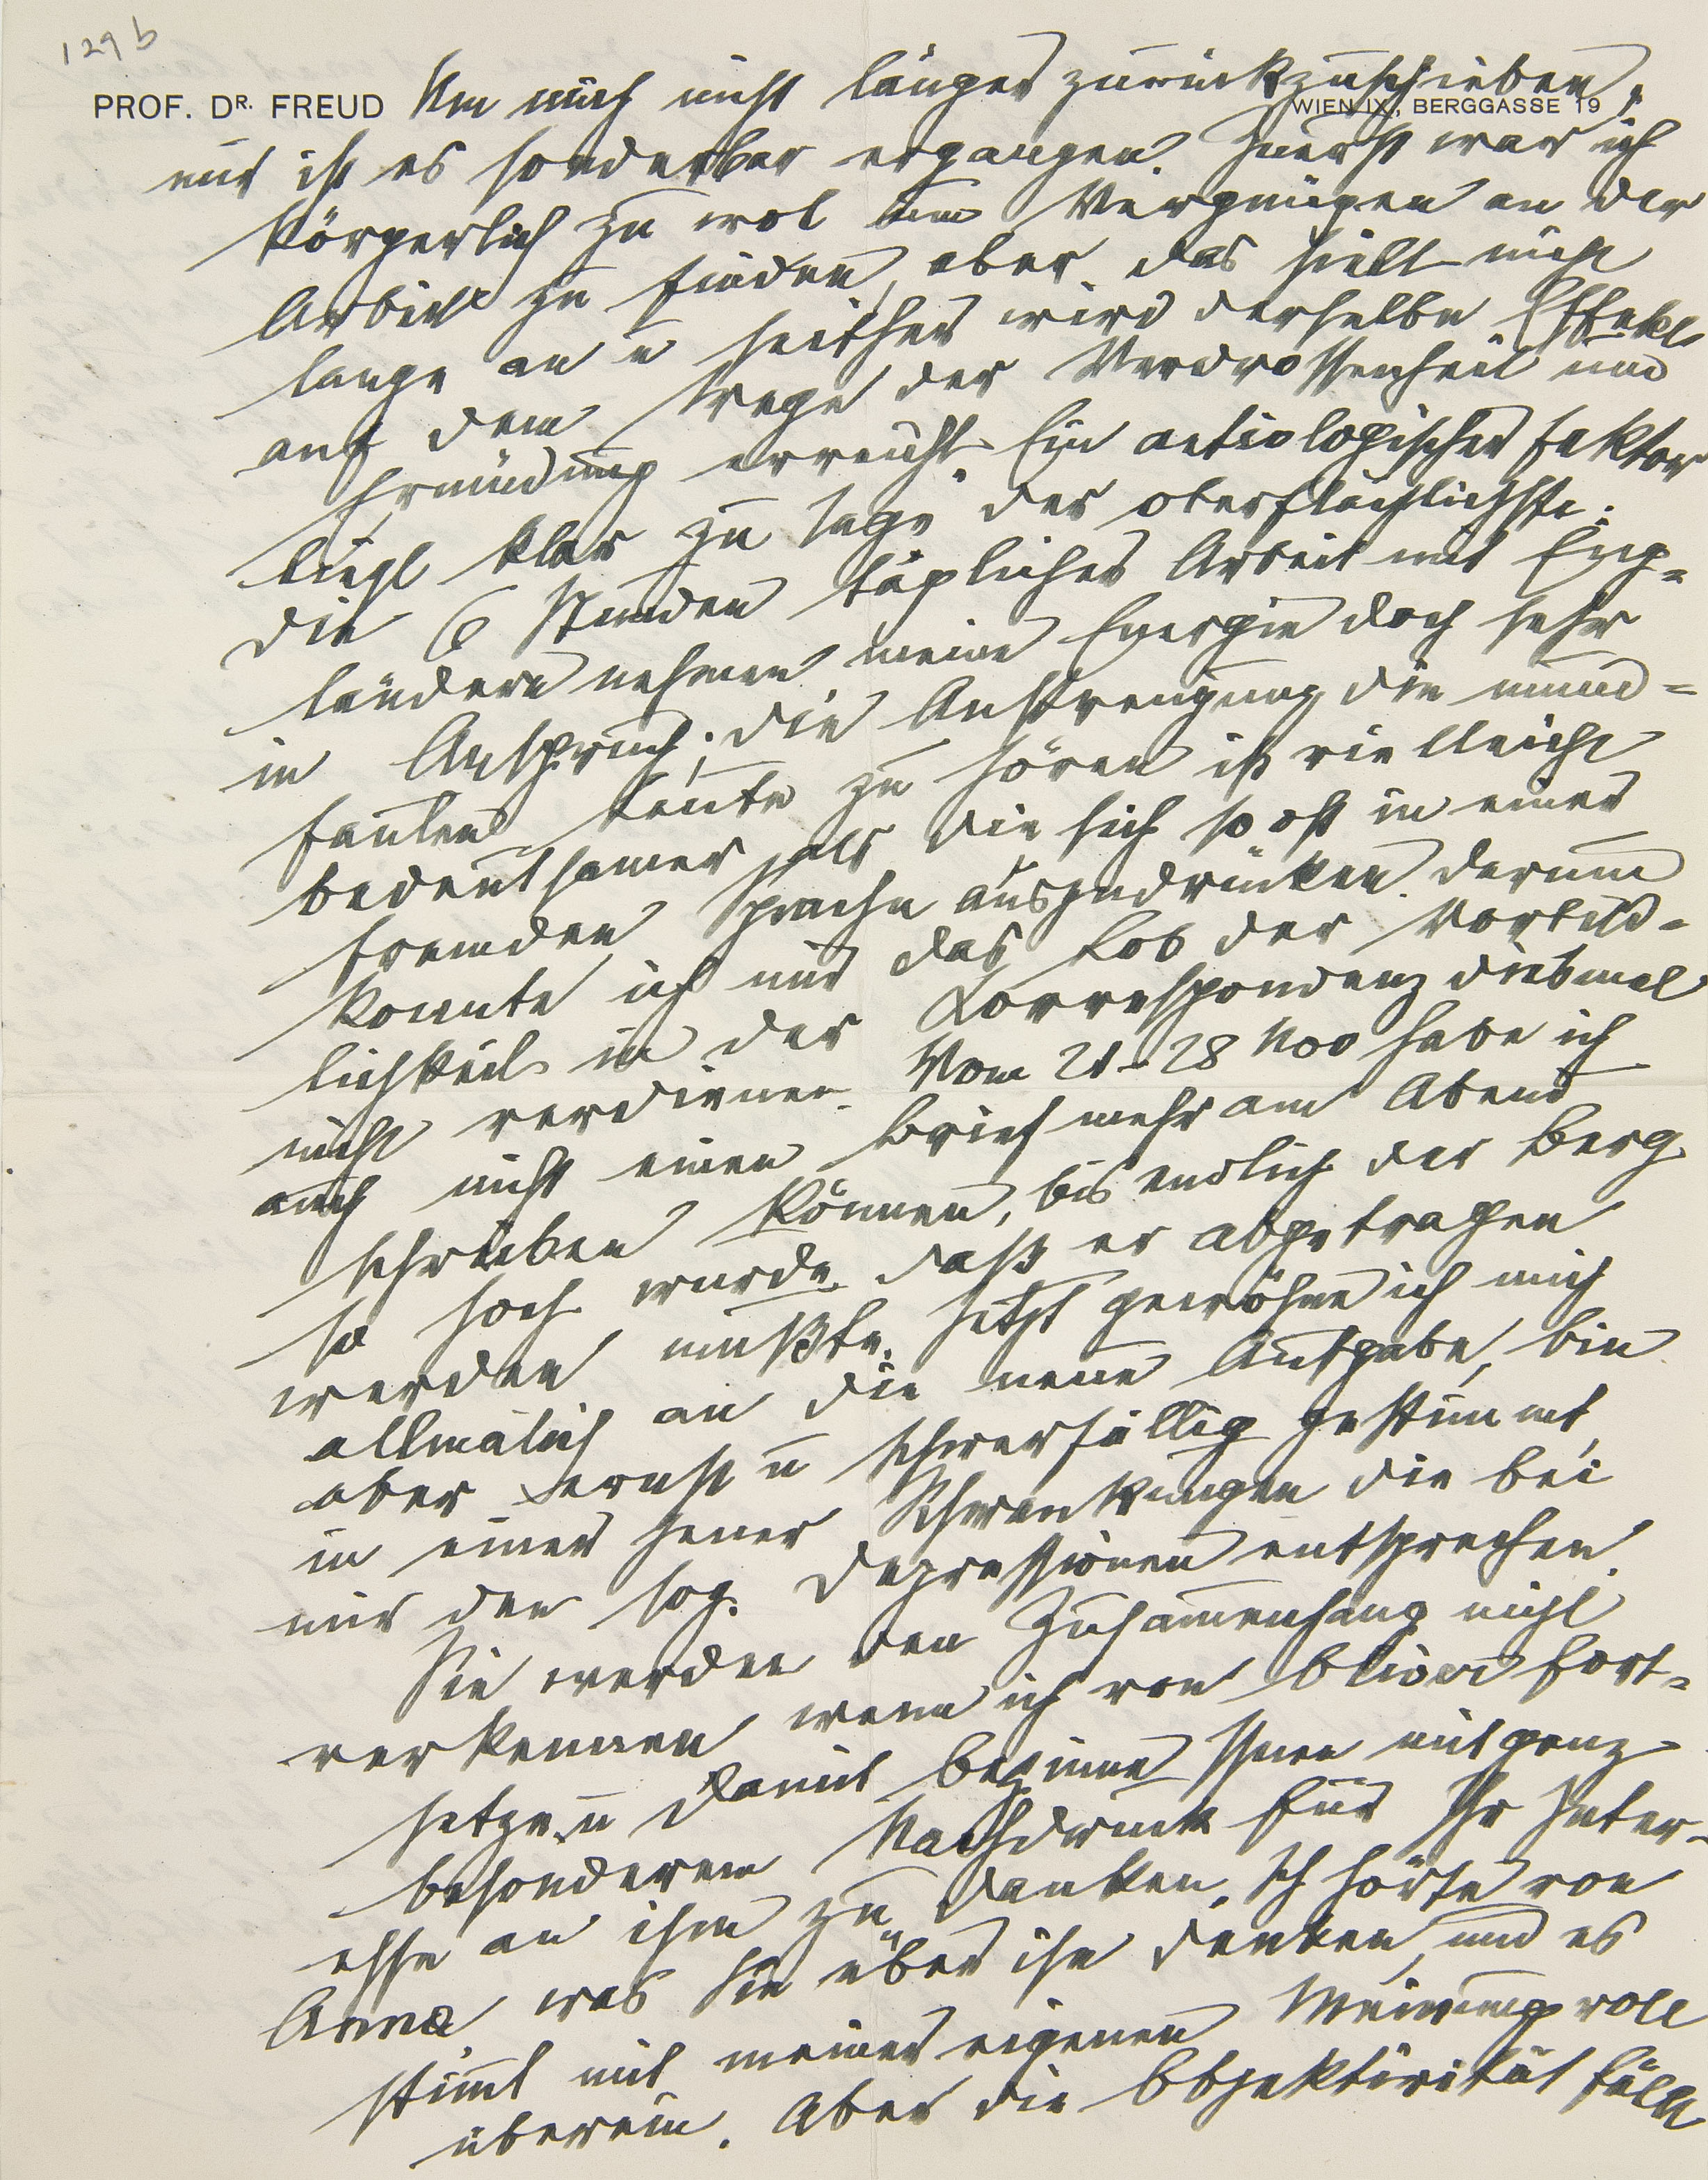 129 b
PROF. DR. FREUD
WIEN IX., BERGGASSE 19
Um mich nicht länger zurückzuschieben,
mir ist es sonderbar ergangen. Zuerst war ich
körperlich zu wol um Vergnügen an der
Arbeit zu finden, aber das hielt nicht
lange an u seither wird derselbe Effekt
auf dem Wege der Verdrossenheit und
Ermüdung erreicht. Ein aetiologischer Faktor
liegt klar zu Tage, der oberflächlichste:
die 6 Stunden täglicher Arbeit mit Eng-
ländern nehmen meine Energie doch sehr
in Anspruch; die Anstrengung die mund-
faulen Leute zu hören ist vielleicht
bedeutsamer als die sich so oft in einer
fremden Sprache auszudrücken. Darum
konnte ich mir das Lob der Vorbild-
lichkeit in der Korrespondenz diesmal
nicht verdienen. Vom 21–28 Nov habe ich
auch nicht einen Brief mehr am Abend
schreiben können, bis endlich der Berg
so hoch wurde, daß er abgetragen
werden mußte. Jetzt gewöhne ich mich
allmälich an die neue Aufgabe, bin
aber ernst u schwerfällig gestimmt,
in einer jener Schwankungen die bei
mir den sog. Depressionen entsprechen.
Sie werden den Zusammenhang nicht
verkennen wenn ich von Oliver fort-
setze u damit beginne Ihnen mit ganz
besonderem Nachdruck für Ihr Inter-
esse an ihm zu danken. Ich hörte von
Anna was Sie über ihn denken, und es
stimmt mit meiner eigenen Meinung voll
überein. Aber die Objektivität fällt